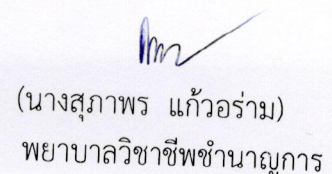 (นางสุภาพร แก้วอร่าม)
พยาบาลวิชาชีพชำนาญการ